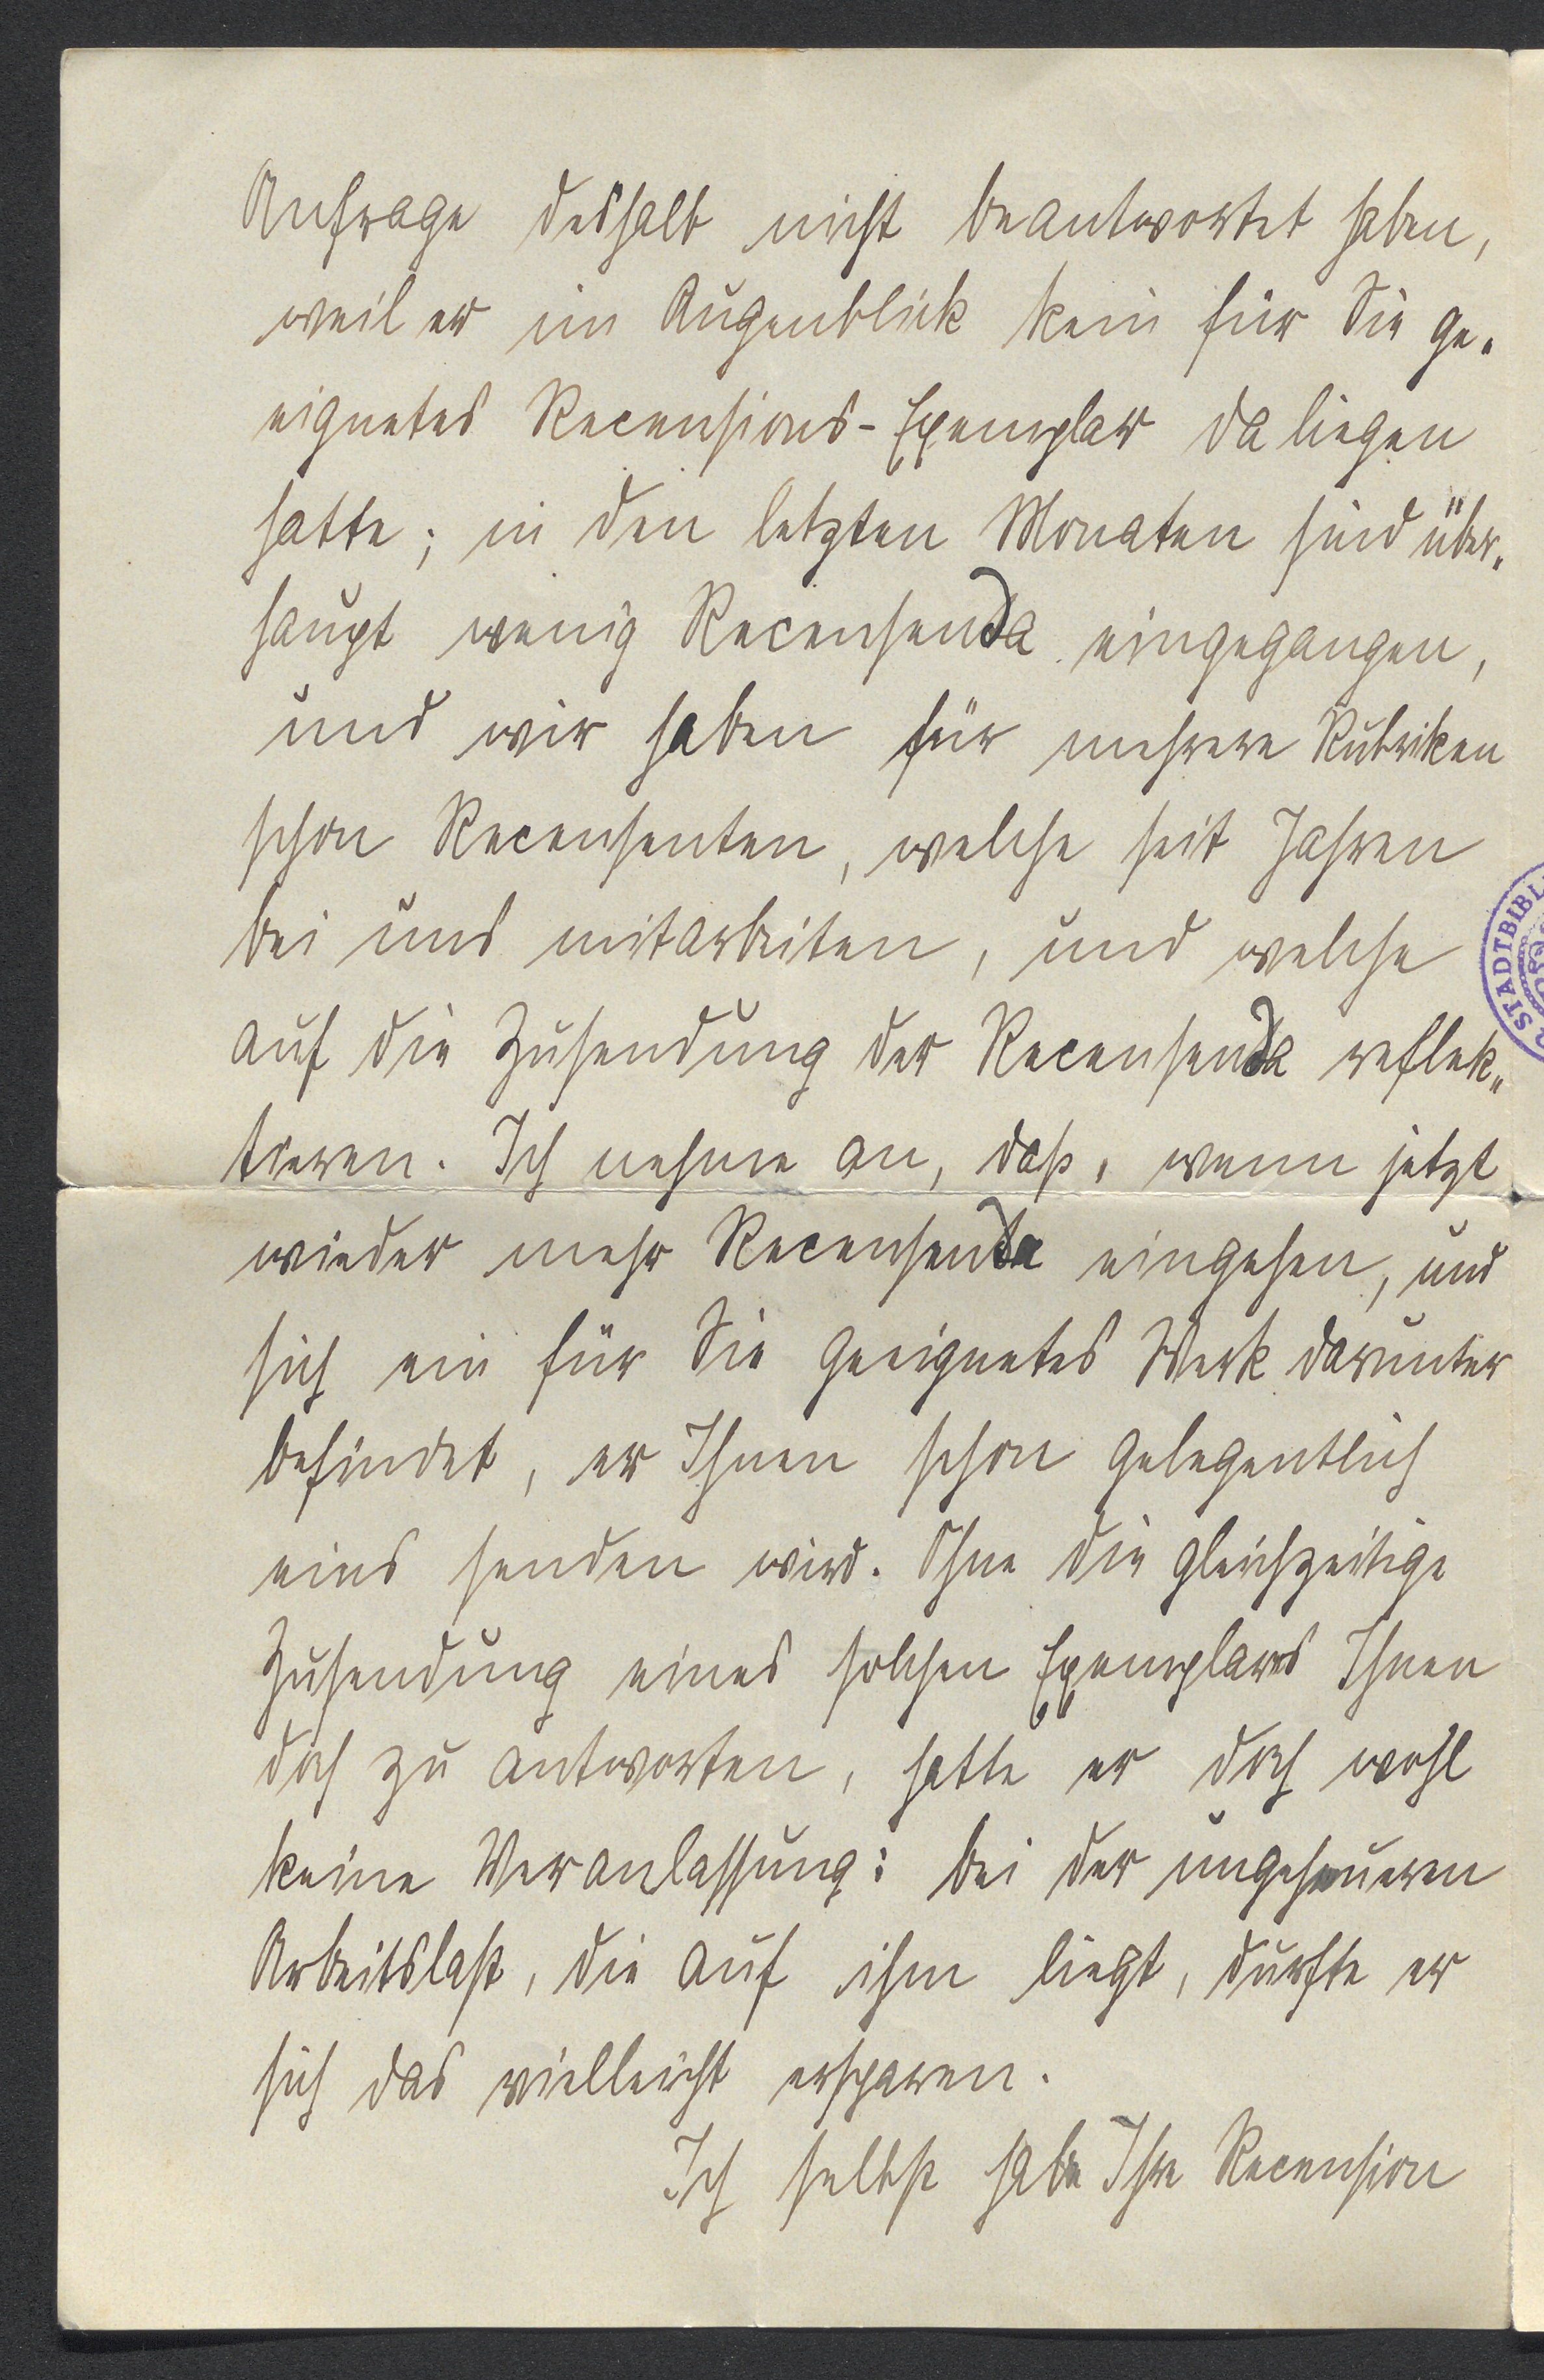 Anfrage deshalb nicht beantwortet haben,
weil er im Augenblick kein für Sie ge-
eignetes Recensions-Exemplar da liegen
hatte; in den letzten Monaten sind über-
haupt wenig Recensenda eingegangen,
und wir haben für mehrere Rubriken
schon Recensenten, welche seit Jahren
bei uns mitarbeiten, und welche
auf die Zusendung der Recensenda reflek-
tieren. Ich nehme an, daß, wenn jetzt
wieder mehr Recensenda eingehen, und
sich ein für Sie geeignetes Werk darunter
befindet, er Ihnen schon gelegentlich
eins senden wird. Ohne die gleichzeitige
Zusendung eines solchen Exemplars Ihnen
doch zu antworten, hatte er doch wohl
keine Veranlassung: bei der ungeheueren
Arbeitslast, die auf ihm liegt, durfte er
sich das vielleicht ersparen.
Ich selbst habe Ihre Recension
STADTBIBL